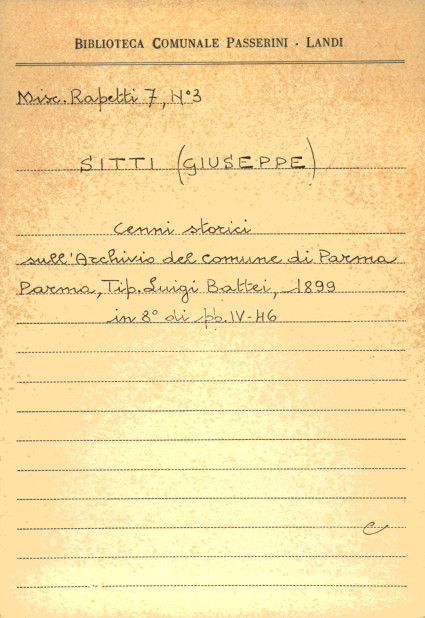 BIBLIOTECA COMUNALE PASSERINI - LANDI
Misc. Rapetti 7, N° 3
SITTI (GIUSEPPE)
Cenni storici
sull'Archivio del Comune di Parma
Parma, Tip. Luigi Battei, 1899
in 8° di pp. IV-46
C